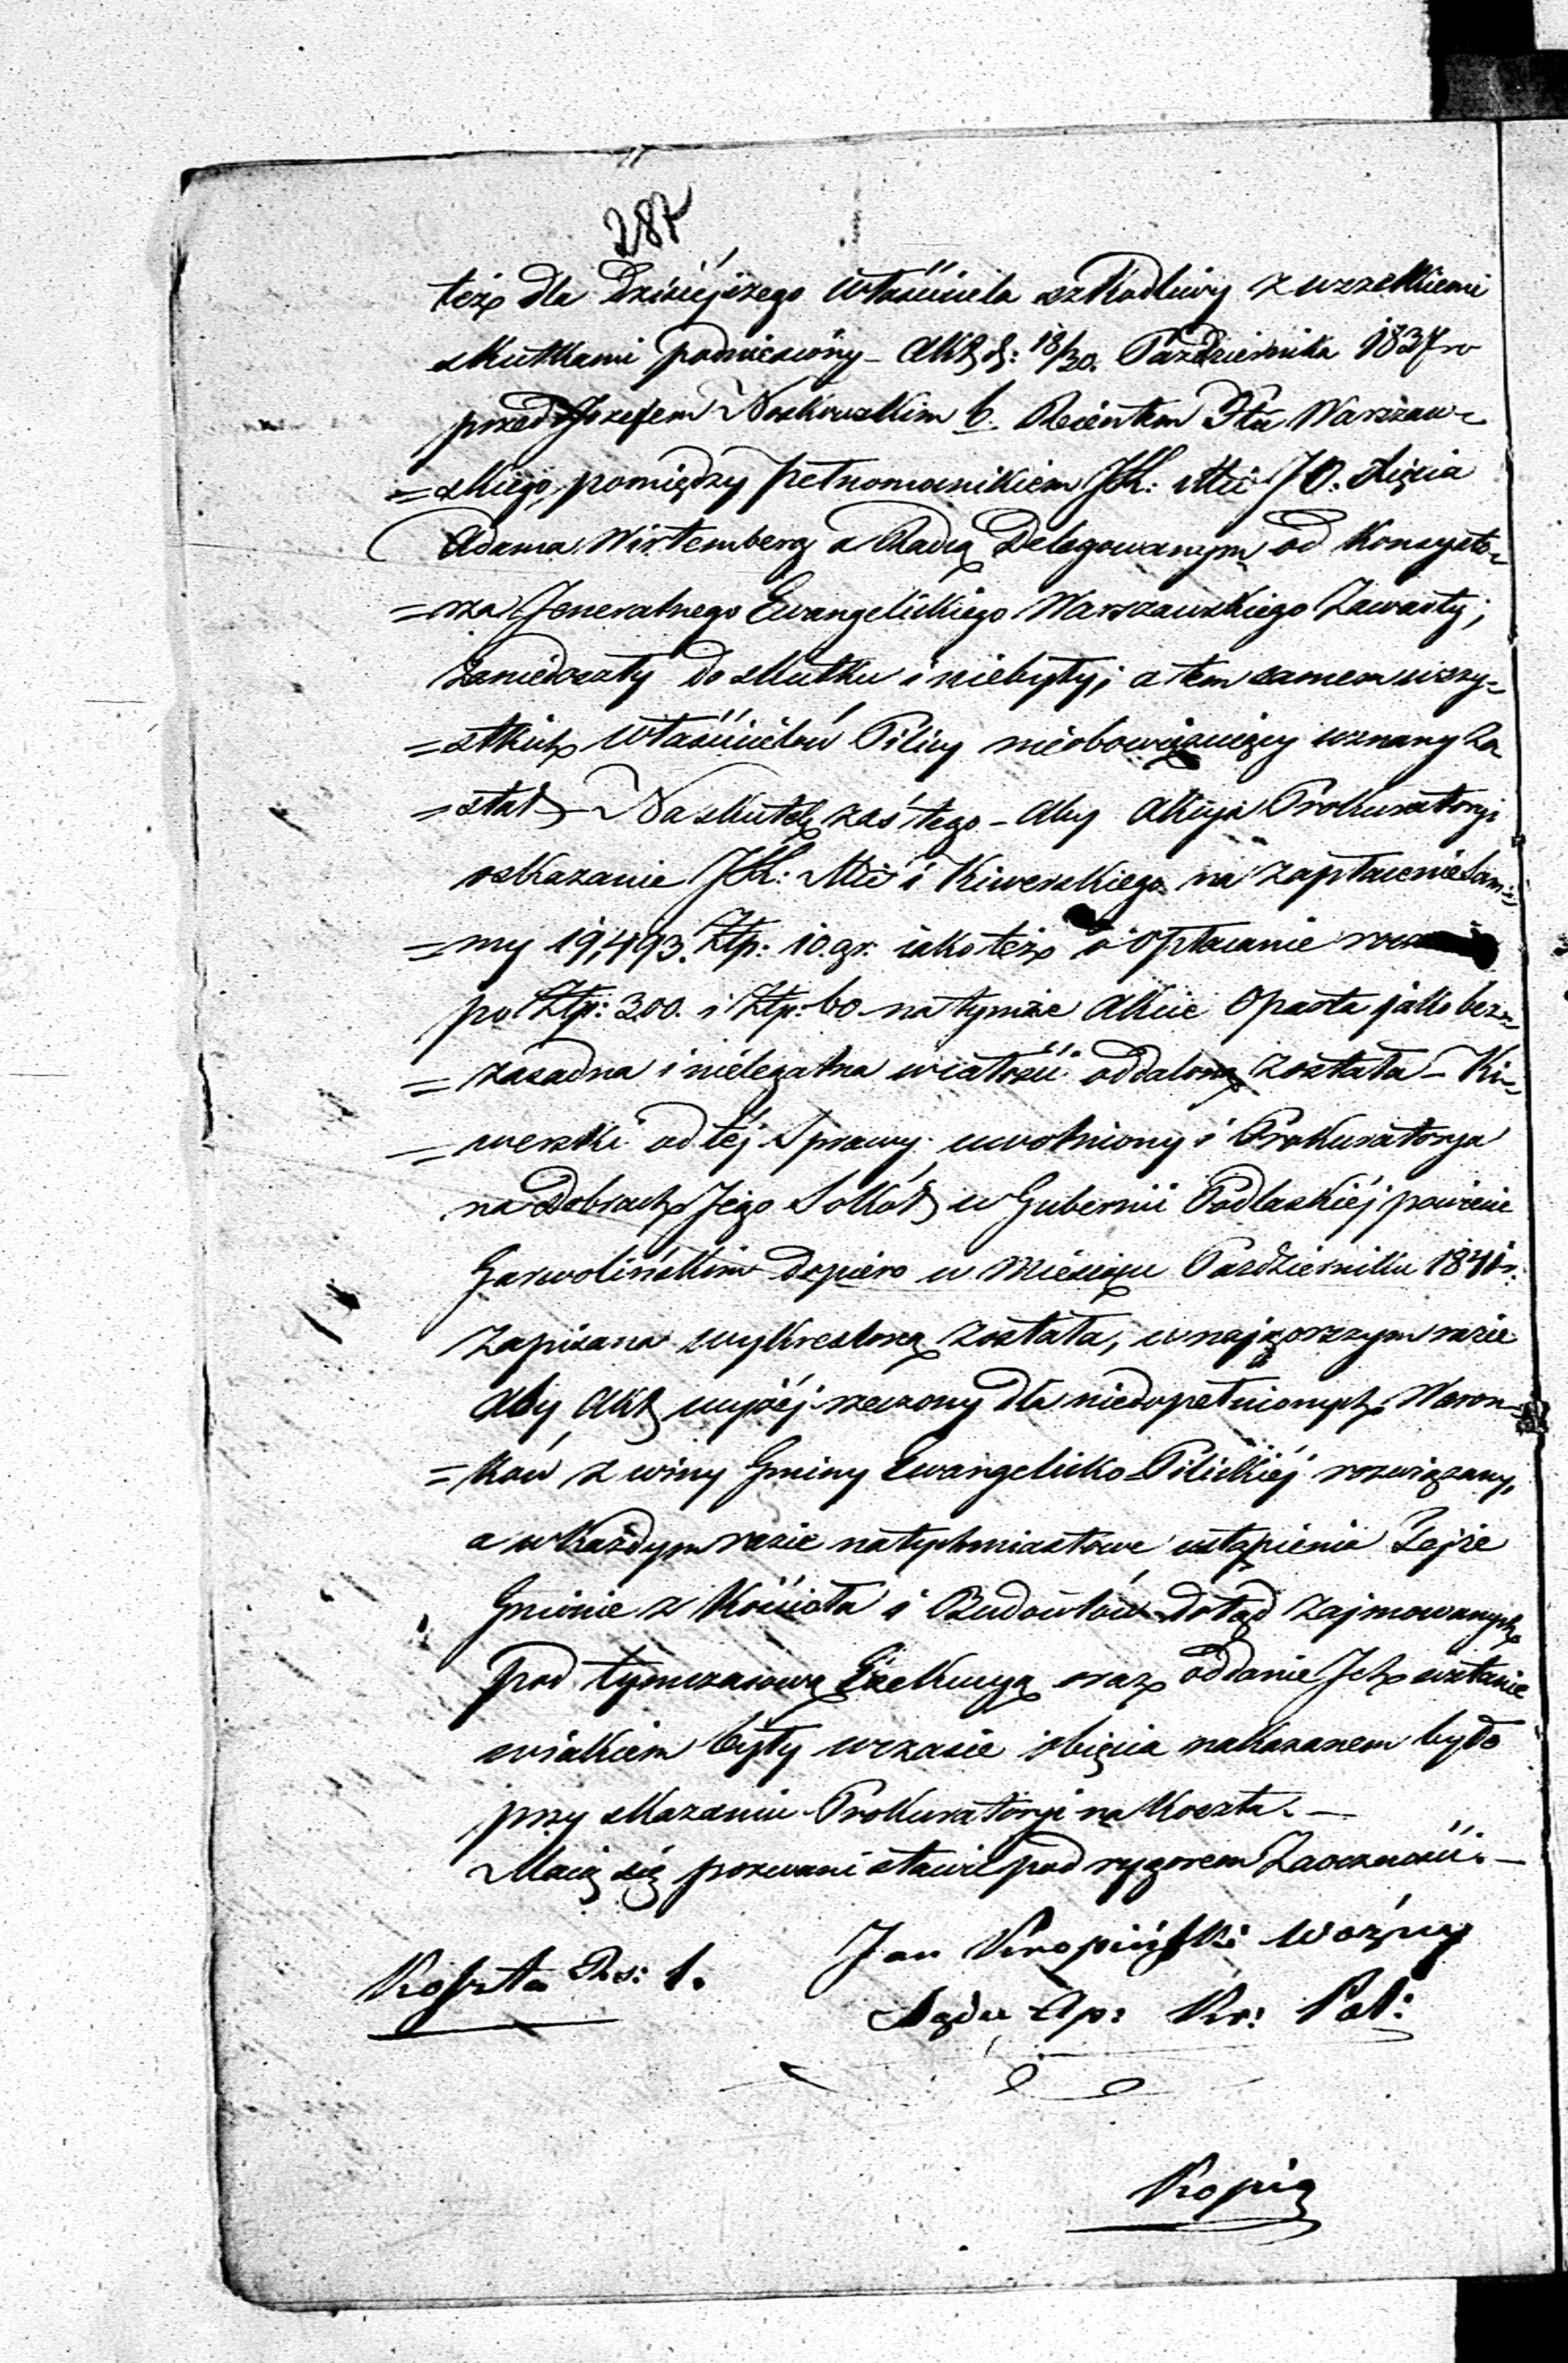 287
też dla Dzisiéjszego właściciela szkodliwy z wszelkiemi
skutkami podniesiony – Akt d: 18/30. Października 1837 ro
przed Jozefem Noskowskim b. Rejentem Ptu Warszaw=
=skiego, pomiędzy pełnomocnikiem JK: Mci JO. Xięcia
Adama Wirtemberg a Radcą Delegowanym od Konsysto=
=rza Jeneralnego Ewangelickiego Warszawskiego Zawarty;
zaniedoszły do skutku i niebyły; a tem samem wszy=
=stkich właścicielów Pilicy nieobowięzuięcy uznany zo
=stał – Na skutek zaś tego – Aby Akcyja Prokuratoryi
o skazanie JK: Mci i Kiwerskiego na zapłacenie Sum=
=my 19,493. Złp: 10. gr. iako też i opłacanie
po Złp: 300. i Złp: 60 na tymże Akcie oparta jako bez=
=zasadna i nielegalna w całości oddaloną została – Ki=
=werski od téj Sprawy uwolniony i Prokuratorya
na Dobrach Jego Sokół w Gubernii Podlaskiéj powiecie
Garwolińskim dopiero w Miesiącu Październiku 1841 r.
zapisana wykreśloną została, w najgorszym razie
Aby Akt wyżéj rzeczony dla niedopełnionych Warun=
=ków z winy Gminy Ewangelicko-Pilickiéj rozwiązany,
a w każdym razie natychmiastowe ustąpienie Tejże
Gminie z Kościoła i Budowlów dotąd zajmowanych
pod tymczasową Exekucyą oraz oddanie Ich w stanie
w iakiem były w czasie obięcia nakazanem było
przy skazaniu Prokuratoryi na Koszta. –
Maią się pozwani stawić pod rygorem Zaoczności. –
Jan Kropiński Woźny
Koszta Rs: 1.
Sądu Ap: Kr: Pol:
Kopią